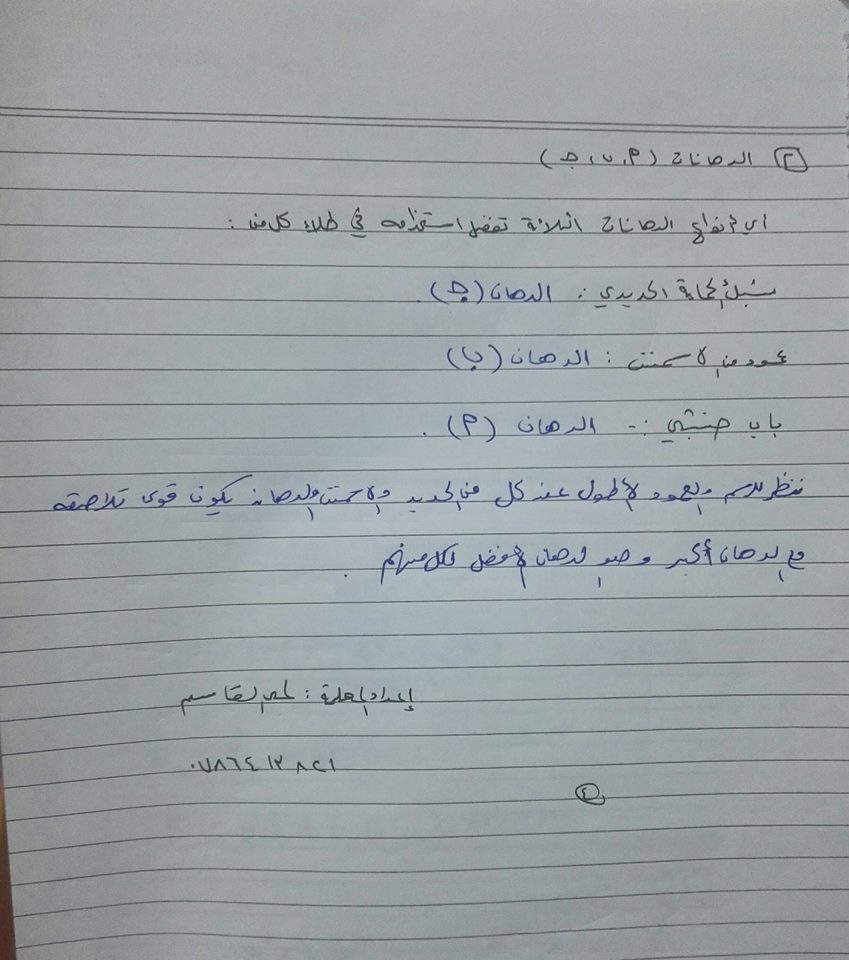 ٢ الدهانات (أ، ب، جـ)
أي أنواع الدهانات الثلاثة تفضل استخدامه في طلاء كل من :
شباك الحماية الحديدي : الدهان (جـ).
عمود من الاسمنت : الدهان (ب)
باب خشبي :- الدهان (أ).
ننظر للرسم والعمود الأطول عند كل من الحديد والاسمنت والدهان يكون قوى تلاصقه
مع الدهان أكبر وهو الدهان الأفضل لكل منهم.
إعداد المعلمة : لمى القاسم
٠٧٨٦٤١٢٨٢١
٤